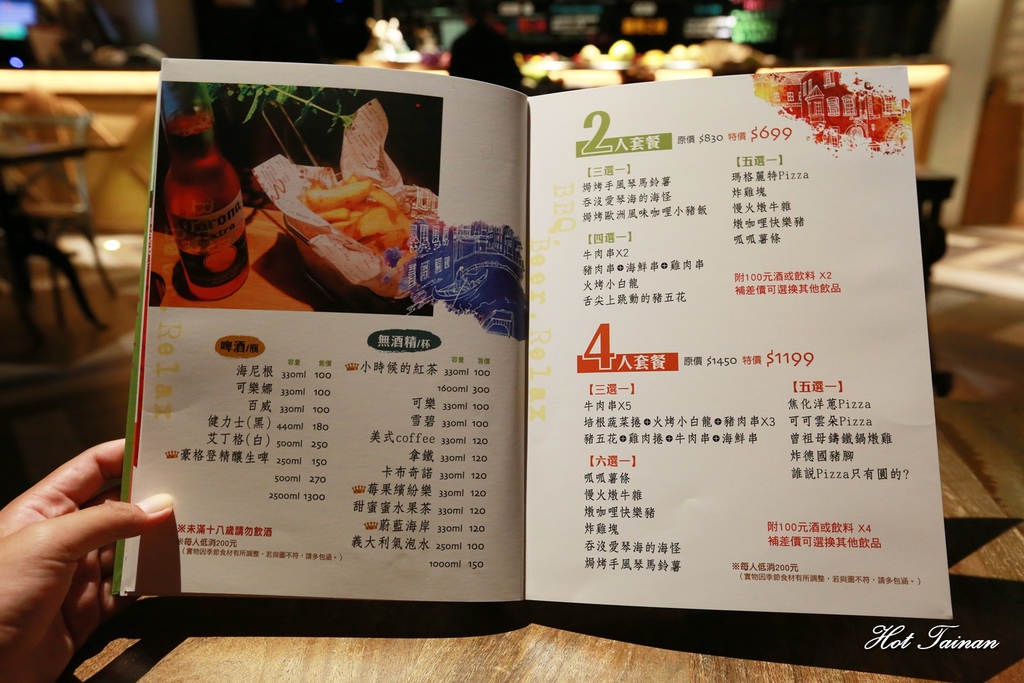 Corona
Extra
BBQ, Beer, Relax
啤酒/瓶
容量 售價
海尼根 330ml 100
可樂娜 330ml 100
百威 330ml 100
健力士(黑) 440ml 180
艾丁格(白) 500ml 250
豪格登精釀生啤 250ml 150
500ml 270
2500ml 1300
※未滿十八歲請勿飲酒
※每人低消200元
(實物因季節食材有所調整,若與圖不符,請多包涵。)
無酒精/杯
容量 售價
小時候的紅茶 330ml 100
1600ml 300
可樂 330ml 100
雪碧 330ml 100
美式coffee 330ml 120
拿鐵 330ml 120
卡布奇諾 330ml 120
莓果繽紛樂 330ml 120
甜蜜蜜水果茶 330ml 120
蔚藍海岸 330ml 120
義大利氣泡水 250ml 100
1000ml 150
2人套餐 原價 $830 特價 $699
【三選一】
焗烤手風琴馬鈴薯
吞沒愛琴海的海怪
焗烤歐洲風味咖哩小豬飯
【四選一】
牛肉串X2
豬肉串+海鮮串+雞肉串
火烤小白龍
舌尖上跳動的豬五花
【五選一】
瑪格麗特Pizza
炸雞塊
慢火燉牛雜
燉咖哩快樂豬
呱呱薯條
附100元酒或飲料 X2
補差價可選換其他飲品
4人套餐 原價 $1450 特價 $1199
【三選一】
牛肉串X5
培根蔬菜捲+火烤小白龍+豬肉串X3
豬五花+雞肉捲+牛肉串+海鮮串
【六選一】
呱呱薯條
慢火燉牛雜
燉咖哩快樂豬
炸雞塊
吞沒愛琴海的海怪
焗烤手風琴馬鈴薯
【五選一】
焦化洋蔥Pizza
可可雲朵Pizza
曾祖母鑄鐵鍋燉雞
炸德國豬腳
誰說Pizza只有圓的?
附100元酒或飲料 X4
補差價可選換其他飲品
※每人低消200元
(實物因季節食材有所調整,若與圖不符,請多包涵。)
Hot Tainan